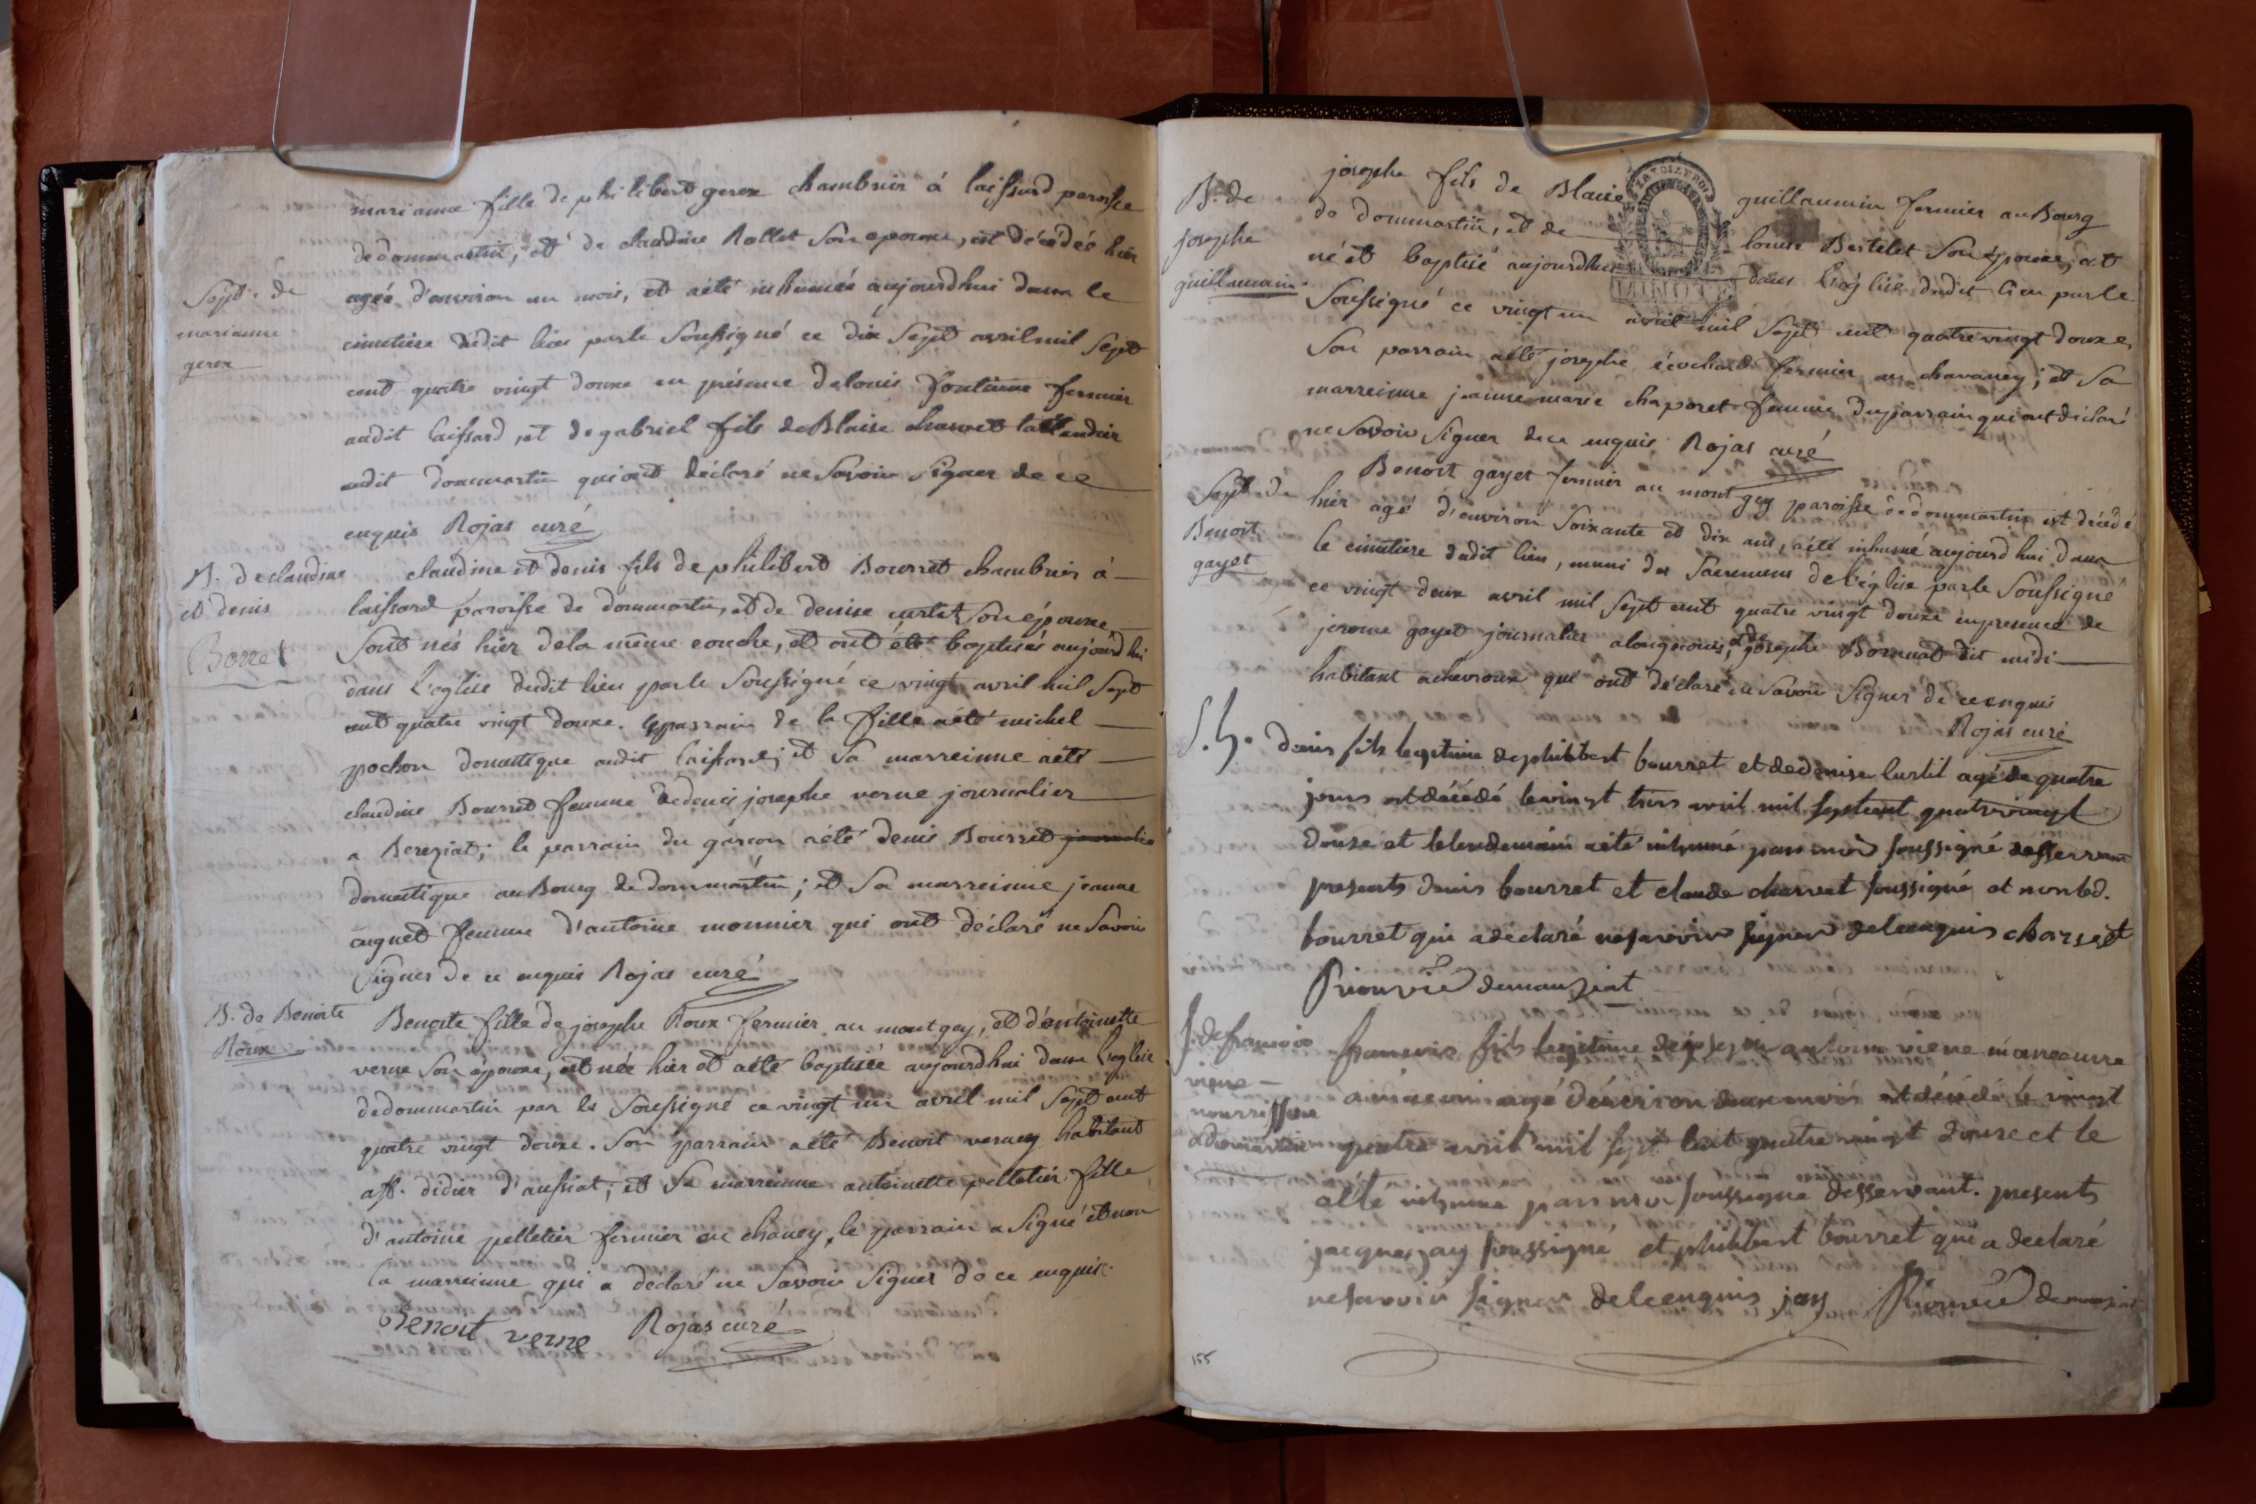 marianne fille de philibert gerex chambrier à laissard paroisse
de dommartin, et de claudine Rollet son epouse, est décédée hier
agée d'environ un mois, et a été inhumée aujourd'hui dans le
Sept. de
marianne
gerex
cimetiere dudit lieu par le soussigné ce dix sept avril mil sept
cent quatre vingt douze en présence de louis fontaine fermier
audit laissard, et de gabriel fils de Blaise charvet
audit dommartin qui ont déclaré ne savoir signer de ce
enquis Rojas curé
B. de claudine
et denis
Borret
claudine et denis fils de philibert Bourret chambrier à
laissard paroisse de dommartin, et de denise curtet son épouse
sont nés hier de la même couche, et ont été baptisés aujourd'hui
dans l'eglise dudit lieu par le soussigné ce vingt avril mil sept
cent quatre vingt douze. le parrain de la fille a été michel
pochon domestique audit laissard; et sa marreinne a été
claudine Bourret femme de denis josephe verne journalier
a Bereziat; le parrain du garcon a été denis Bourret journalier
domestique au Bourg de dommartin; et sa marreinne jeanne
cugnet femme d'antoine monnier qui ont déclaré ne savoir
signer de ce enquis Rojas curé
B. de Benoite
Roux
Benoite fille de josephe Roux fermier au montgey, et d'antoinette
verne son épouse, est née hier et a été baptisée aujourd'hui dans l'eglise
de dommartin par le soussigné ce vingt un avril mil sept cent
quatre vingt douze. son parrain a été Benoit verney habitant
a st. didier d'aussiat; et sa marreinne antoinette pelletier fille
d'antoine pelletier fermier au chaney, le parrain a signé et non
la marreinne qui a declaré ne savoir signer de ce enquis.
Benoit verne Rojas curé
B. de
josephe
guillaumin
josephe fils de Blaise guillaumin fermier au Bourg
de dommartin, et de louise Bertelet son épouse, est
né et baptisé aujourd'hui dans l'eglise dudit lieu par le
soussigné ce vingt un avril mil sept cent quatre vingt douze,
son parrain a été josephe écochard fermier au chavaney; et sa
marreinne jeanne marie chaporet femme du parrain qui ont déclaré
ne savoir signer de ce enquis Rojas curé
Sept. de
Benoit
gayet
Benoit gayet fermier au montgey paroisse de dommartin est décédé
hier agé d'environ soixante et dix ans, a été inhumé aujourd'hui dans
le cimetiere dudit lieu, muni des sacremens de l'église par le soussigné
ce vingt deux avril mil sept cent quatre vingt douze en presence de
jerome gayet journalier et de josephe Bornuat dit midi
habitant a chevroux qui ont déclaré ne savoir signer de ce enquis
Rojas curé
denis fils legitime de philibert bourret et de denise curtil agé de quatre
jours est décédé le vingt trois avril mil sept cent quatre vingt
douze et le lendemain a été inhumé par moi soussigné desservant
presents denis bourret et claude charvet soussigné et non led.
bourret qui a declaré ne savoir signer de ce enquis charvet
de mantziat
S. de francois
viene
nourrisson
a domartin
francois fils legitime de joseph antoine viene manoeuvre
agé d'environ deux mois est décédé le vingt
quatre avril mil sept cent quatre vingt douze et le
a été inhumé par moi soussigné desservant. presents
jacques jay soussigné et philibert bourret qui a declaré
ne savoir signer de ce enquis jay
155